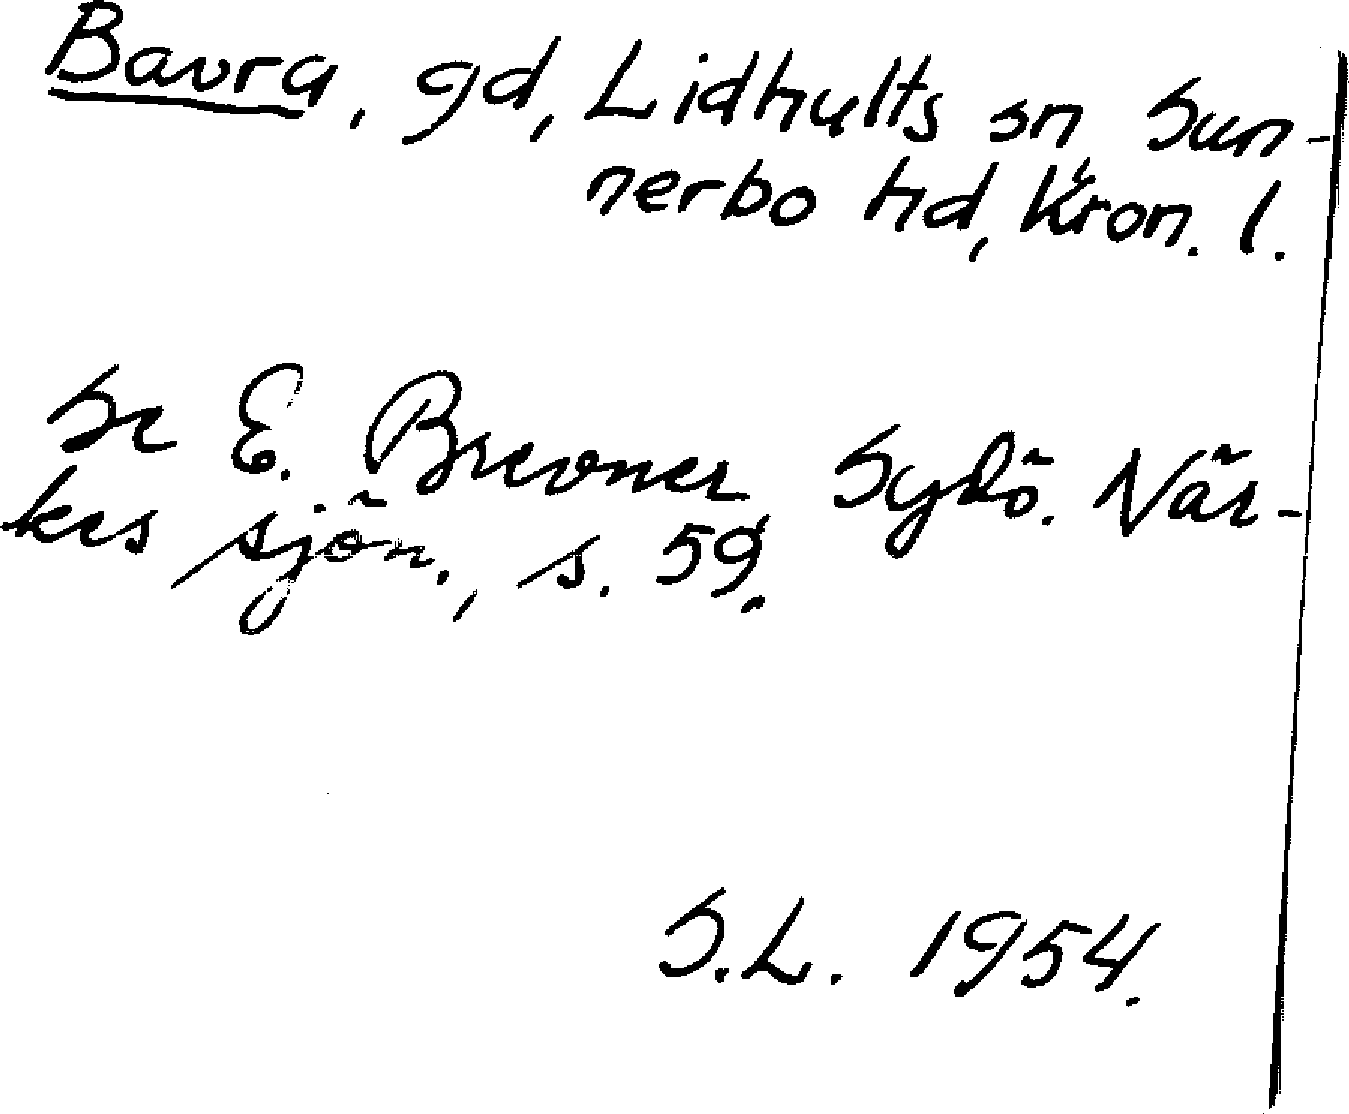 Bavra, gd, Lidhults sn Sun-
nerbo hd, Kron. l.
Se E. Brevner Sydö. När-
kes sjön., s. 59.
S.L. 1954.